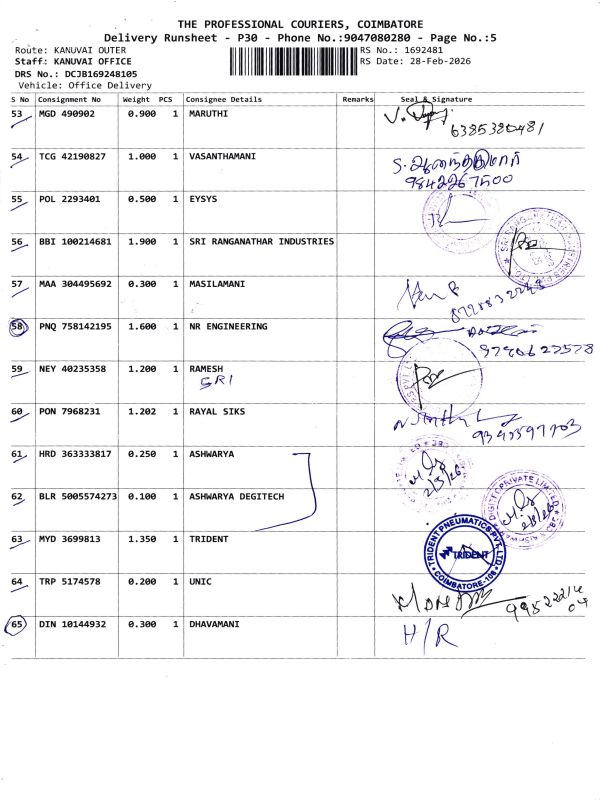 THE PROFESSIONAL COURIERS, COIMBATORE
Delivery Runsheet - P30 - Phone No.:9047080280 - Page No.:5
Route: KANUVAI OUTER
Staff: KANUVAI OFFICE
DRS No.: DCJB169248105
Vehicle: Office Delivery
RS No.: 1692481
RS Date: 28-Feb-2026
S No Consignment No Weight PCS Consignee Details Remarks Seal & Signature
53 MGD 490902 0.900 1 MARUTHI
6385380481
54 TCG 42190827 1.000 1 VASANTHAMANI
S. ஆனந்தகுமார்
9842267500
55 POL 2293401 0.500 1 EYSYS
56 BBI 100214681 1.900 1 SRI RANGANATHAR INDUSTRIES
57 MAA 304495692 0.300 1 MASILAMANI
58 PNQ 758142195 1.600 1 NR ENGINEERING
9790627578
59 NEY 40235358 1.200 1 RAMESH
SRI
60 PON 7968231 1.202 1 RAYAL SIKS
9345597703
61 HRD 363333817 0.250 1 ASHWARYA
62 BLR 5005574273 0.100 1 ASHWARYA DEGITECH
63 MYD 3699813 1.350 1 TRIDENT
TRIDENT PNEUMATICS PVT. LTD.
TRIDENT
COIMBATORE-108
64 TRP 5174578 0.200 1 UNIC
65 DIN 10144932 0.300 1 DHAVAMANI
H/R